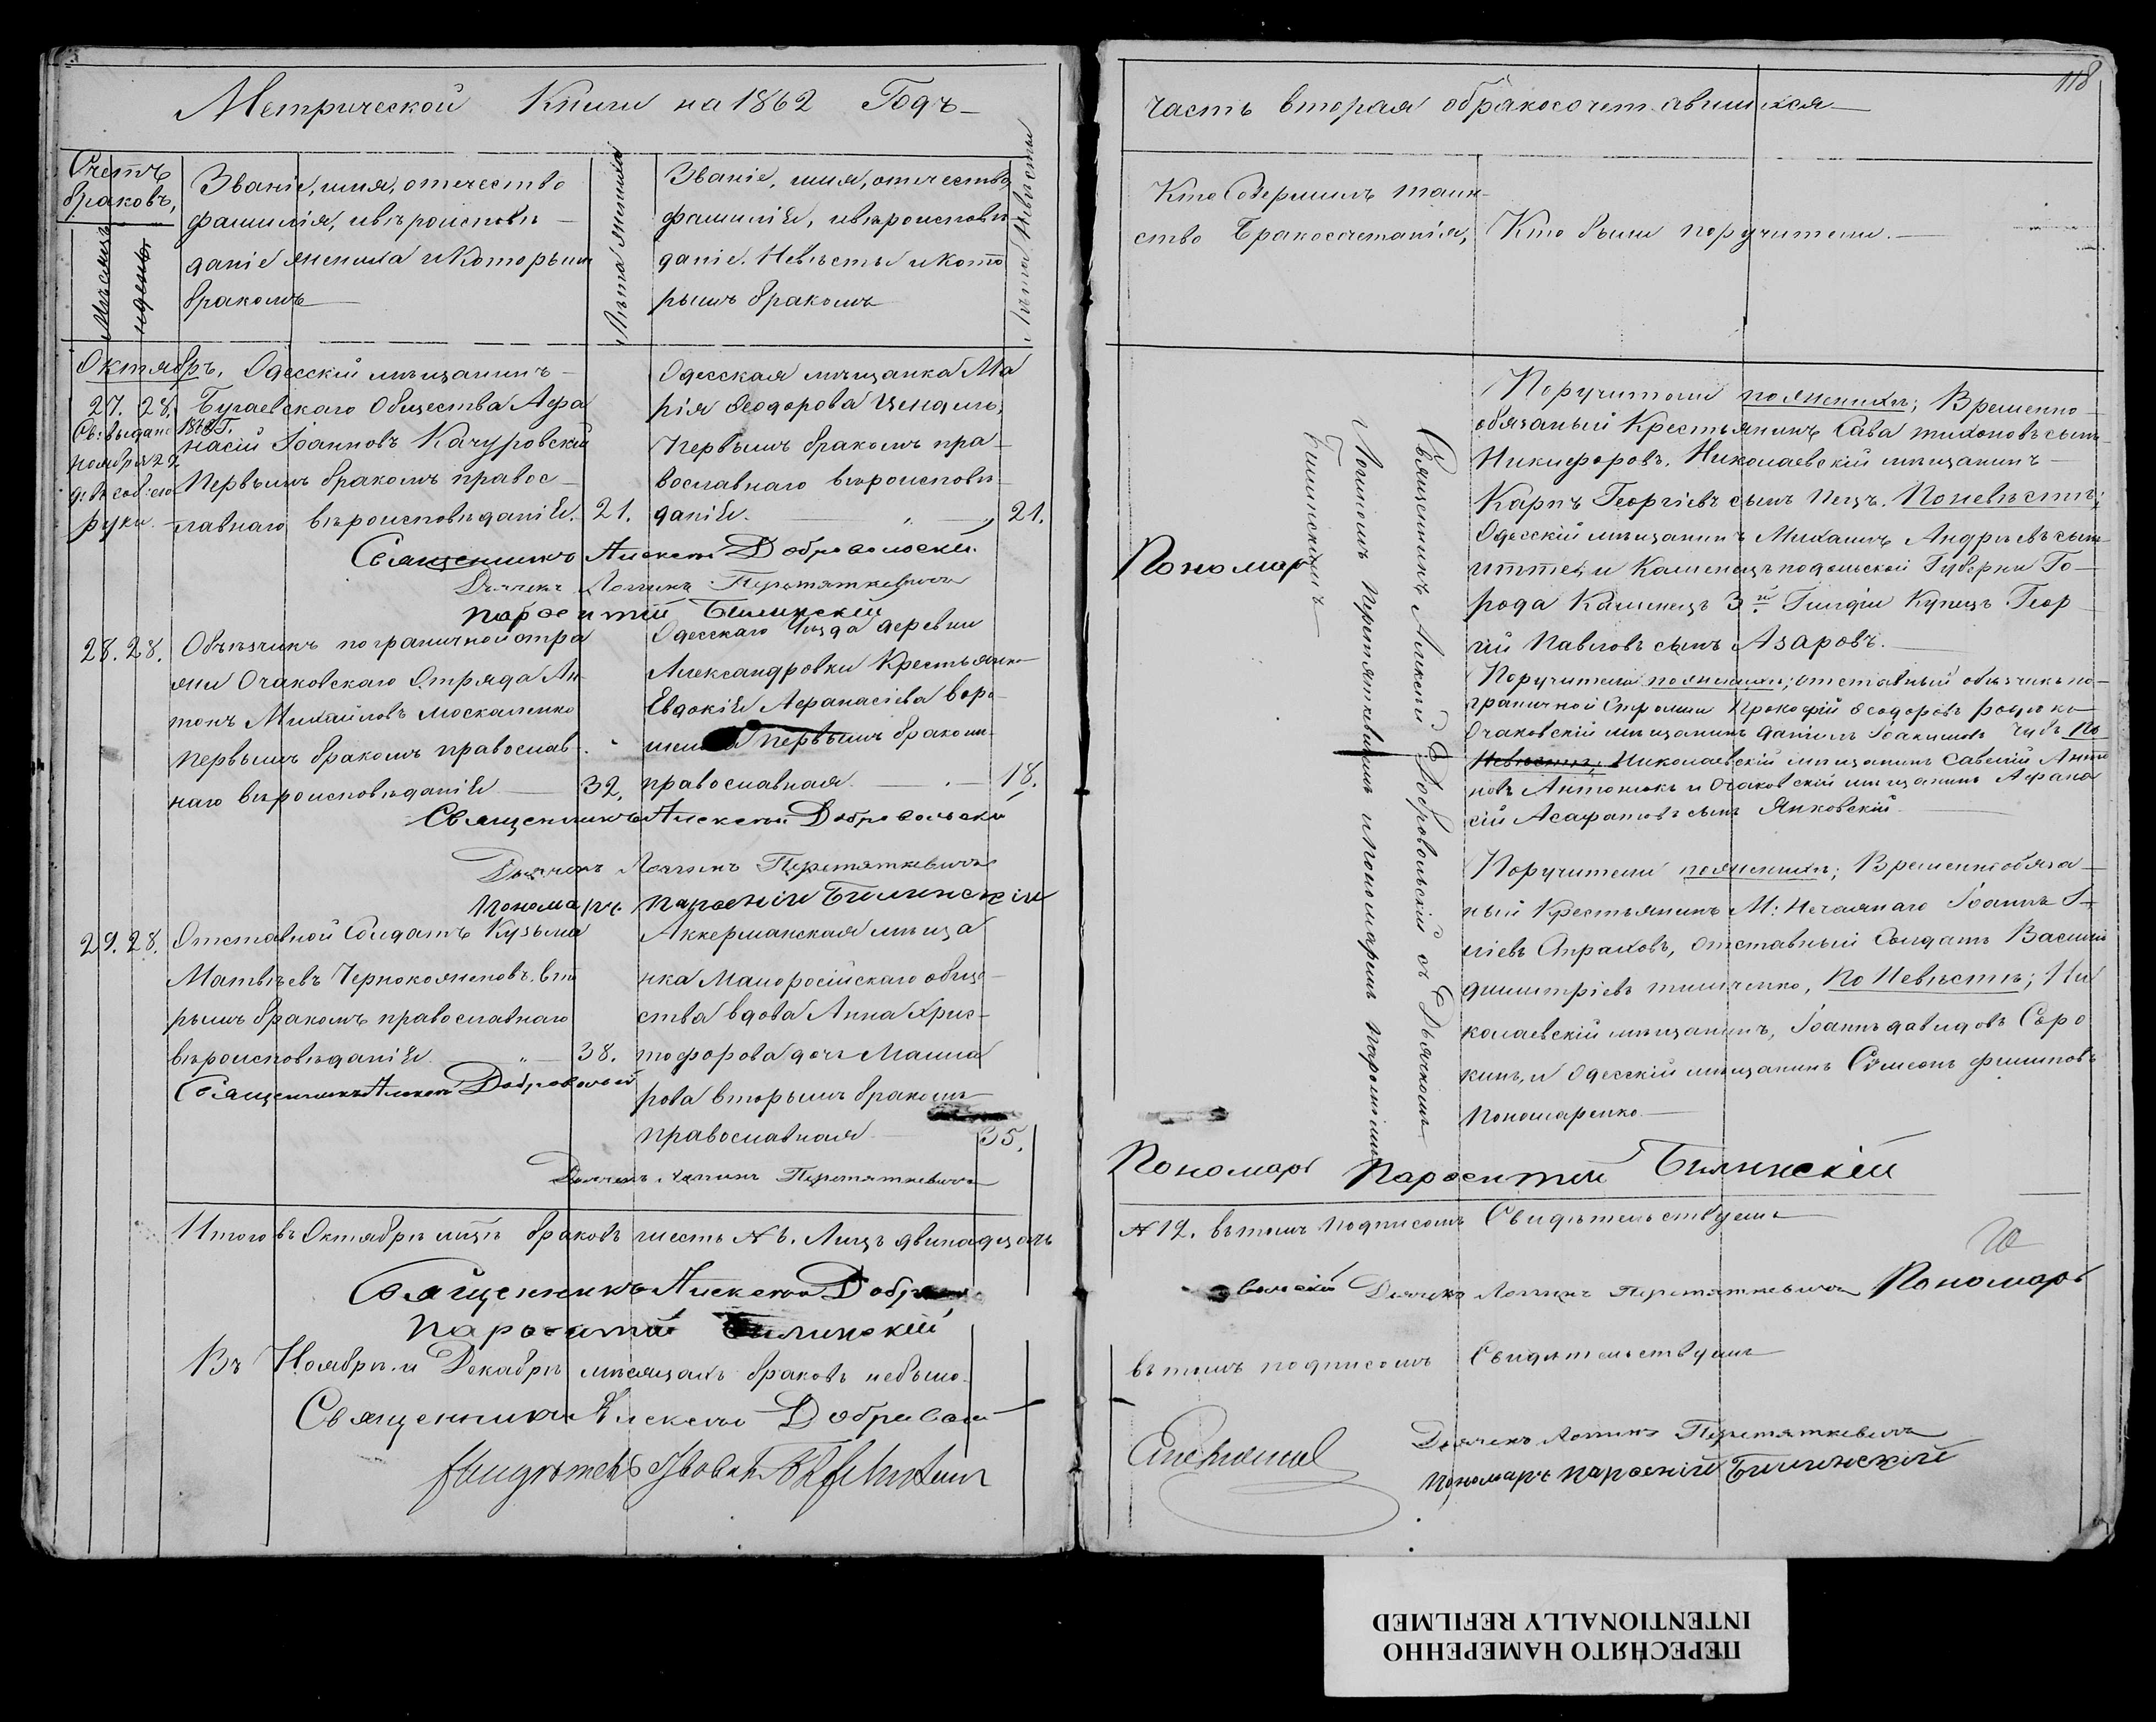 Метрической Книги на 1862 Годъ
Счетъ
браковъ,
Мѣсяцъ
и день
Званіе, имя, отечество
фамилія, и вѣроисповѣ
даніе жениха и Которымъ
бракомъ
Лѣта жениха
Званіе, имя, отчество,
фамиліе, и вѣроисповѣ
даніе. Невѣсты и кото
рымъ бракомъ
Лѣта Невѣсты
Октябрь. Одесскій мѣщанинъ
27. 28. Бугаевскаго Общества Афа
насій Іоанновъ Качуровскій
Первымъ бракомъ правос
лавнаго вѣроисповѣданіе. 21.
ноября 22
руки.
Одесская мѣщанка Ма
рія Ѳеодорова
Первымъ бракомъ пра
вославнаго вѣроисповѣ
даніе. 21.
Священникъ Алексѣй Добровольскій
Дьячекъ Логинъ Перетяткевичъ
Парѳентій Билинскій
28. 28. Объѣзчикъ пограничной стра
жи Очаковскаго Отряда Ан
тонъ Михайловъ Москаленко
Первымъ бракомъ православ
наго вѣроисповѣданіе 32.
Одесскаго Уѣзда деревни
Александровки Крестьянка
Евдокіе Афанасіева
Первымъ браком
православная 18.
Священникъ Алексѣй Добровольскій
Дьячекъ Логинъ Перетяткевичъ
Пономарь Парѳеній Билинскій
29. 28. Отставной Солдатъ Кузьма
Матвѣевъ Чернокожновъ. вто
рымъ бракомъ православнаго
вѣроисповѣданіе 38.
Священникъ Алексѣй Добровольскій
Аккерманская мѣща
нка Малоросійскаго обще
ства вдова Анна Хрис
тофорова дочь Мама
рова вторымъ бракомъ
православная 35.
Дьячекъ Логинъ Перетяткевичъ
Итого въ Октябрѣ мцѣ браковъ шесть № 6. Лицъ двинадцать
Священникъ Алексѣй Добро
Парѳентій Билинскій
Въ Ноябрѣ и Декабрѣ мѣсяцахъ браковъ небыло.
Священникъ Алексѣй Доброволь
118
часть вторая о бракосочетавшихся
Кто Совершилъ таин
ство Бракосочетанія,
Кто были поручители.
Священникъ Алексѣй Добровольскій съ Дьячкомъ
Логиномъ Перетяткевичемъ и пономаремъ Парѳеніемъ
Билинскимъ
Пономарь
Поручители по женихѣ; Временно
обязаный Крестьянинъ Сава Тихоновъ сынъ
Никифоровъ, Николаевскій мѣщанинъ
Карпъ Георгіевъ сынъ Пецъ. По невѣстѣ;
Одесскій мѣщанинъ Михаилъ Андрѣевъ сынъ
и Каменецъ подольской Губерни Го
рода Каменецъ 3й Гилдіи Купецъ Геор
гій Павловъ сынъ Азаровъ.
Поручители по женихѣ; отставный объѣзчикъ по
граничной Стражи Прокофій Ѳеодоровъ
Очаковскій мѣщанинъ Даніилъ Іоакимовъ Чубъ По
Невѣстѣ; Николаевскій мѣщанинъ Савелій Анто
новъ Антонюкъ и Очаковскій мѣщанинъ Афана
сій Асафатовъ сынъ Янковскій
Поручители по женихѣ; Временнообяза
ный Крестьянинъ М: Нечаянаго Іоаннъ
Страховъ, отставный Солдатъ Василій
Димитріевъ Тимченко, По Невѣстѣ; Ни
колаевскій мѣщанинъ, Іоаннъ Давидовъ Соро
кинъ, и Одесскій мѣщанинъ Симеонъ Филиповъ
Пономаренко.
Пономарь Парѳентій Билинскій
№ 12. въ томъ подписомъ Свидѣтельствуемъ
вольскій Дьячекъ Логинъ Перетяткевичъ Пономарь
въ томъ подписомъ Свидѣтельствуемъ
Дьячекъ Логинъ Перетяткевичъ
Пономарь Парѳеній Билинскій
ПЕРЕСНЯТО НАМЕРЕННО
INTENTIONALLY REFILMED